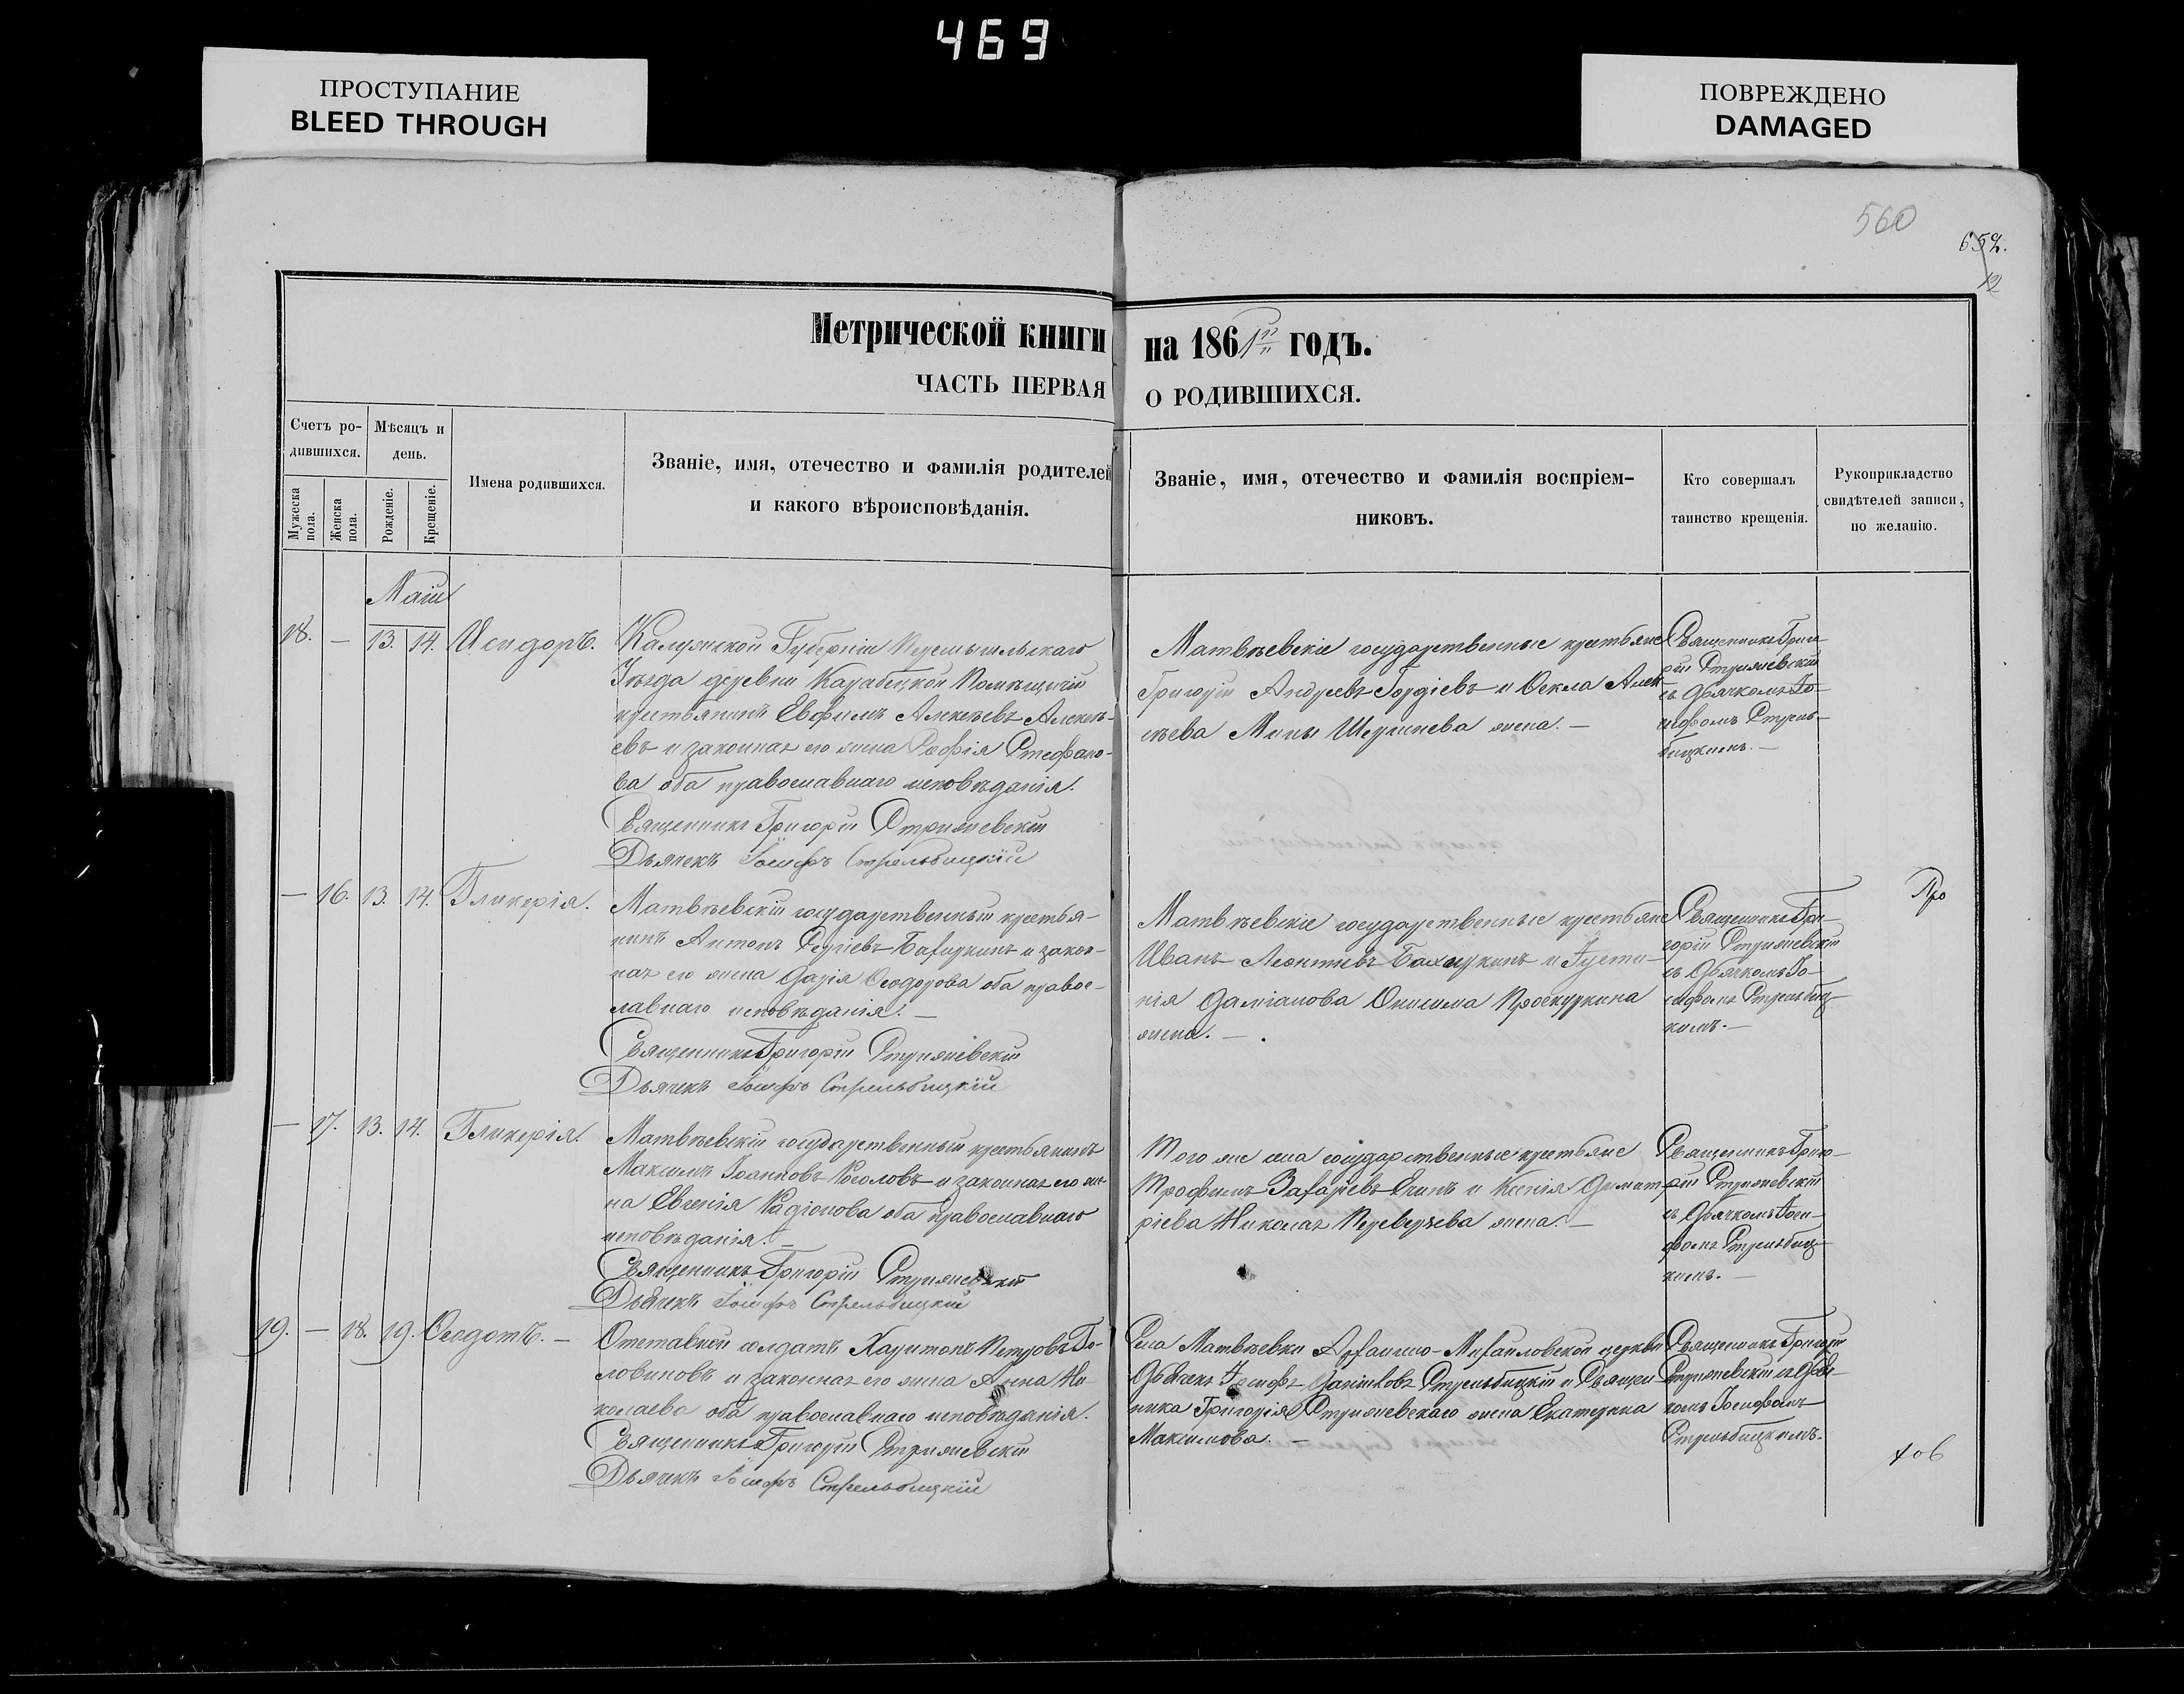 469
ПРОСТУПАНИЕ
BLEED THROUGH
ПОВРЕЖДЕНО
DAMAGED
560
652.
12
Метрической книги на 1861й годъ.
ЧАСТЬ ПЕРВАЯ О РОДИВШИХСЯ.
Счетъ ро-
дившихся.
Мужеска пола.
Женска пола.
Мѣсяцъ и
день.
Рожденіе.
Крещеніе.
Имена родившихся.
Званіе, имя, отечество и фамилія родителей
и какого вѣроисповѣданія.
Званіе, имя, отечество и фамилія воспріем-
никовъ.
Кто совершалъ
таинство крещенія.
Рукоприкладство
свидѣтелей записи,
по желанію.
Маій
18. — 13. 14. Исидоръ.
Калужской Губерніи Перемышльскаго
Уѣзда деревни Помѣщичій
крестьянинъ Евфимъ Алексѣевъ Алексѣ-
евъ и законная его жена Софія Стефано-
ва оба православнаго исповѣданія.
Священникъ Григорій Стрижевскій
Дьячекъ Іосифъ Стрельбицкій
Матвѣевскіе государственные крестьяне
Григорій Андреевъ Гордіевъ и Ѳекла Алек-
сѣева Мины жена. —
Священникъ Григо-
рій Стрижевскій
съ Дьячкомъ Іо-
сифомъ Стрель-
бицкимъ. —
— 16. 13. 14. Гликерія.
Матвѣевскій государственный крестья-
нинъ Антонъ Сергіевъ и закон-
ная его жена Дарія Ѳеодорова оба правос-
лавнаго исповѣданія. —
Священникъ Григорій Стрижевскій
Дьячекъ Іосифъ Стрельбицкій
Матвѣевскіе государственные крестьяне
Иванъ Леонтіевъ и Іусти-
нія Даміанова Онисима Проскуркина
жена. —
Священникъ Гри-
горій Стрижевскій
съ Дьячкомъ Іо-
сифомъ Стрельбиц-
кимъ. —
Про
— 17. 13. 14. Гликерія.
Матвѣевскій государственный крестьянинъ
Максимъ Іоанновъ и законная его же-
на Евгенія Радіонова оба православнаго
исповѣданія. —
Священникъ Григорій Стрижевскій
Дьячекъ Іосифъ Стрельбицкій
Того же села государственные крестьяне
Трофимъ Захаріевъ и Ксенія Димит-
ріева Николая Переверзева жена. —
Священникъ Григо-
рій Стрижевскій
съ Дьячкомъ Іоси-
фомъ Стрельбиц-
кимъ. —
19. — 18. 19. Ѳеодотъ. —
Отставной солдатъ Харитонъ Петровъ Го-
ловиновъ и законная его жена Анна Ни-
колаева оба православнаго исповѣданія.
Священникъ Григорій Стрижевскій
Дьячекъ Іосифъ Стрельбицкій
Села Матвѣевки Архангело-Михайловской церкви
Дьячекъ Іосифъ Стрельбицкій и Священ-
ника Григорія Стрижевскаго жена Екатерина
Максимова. —
Священникъ Григорій
Стрижевскій съ Дьяч-
комъ Іосифомъ
Стрельбицкимъ.